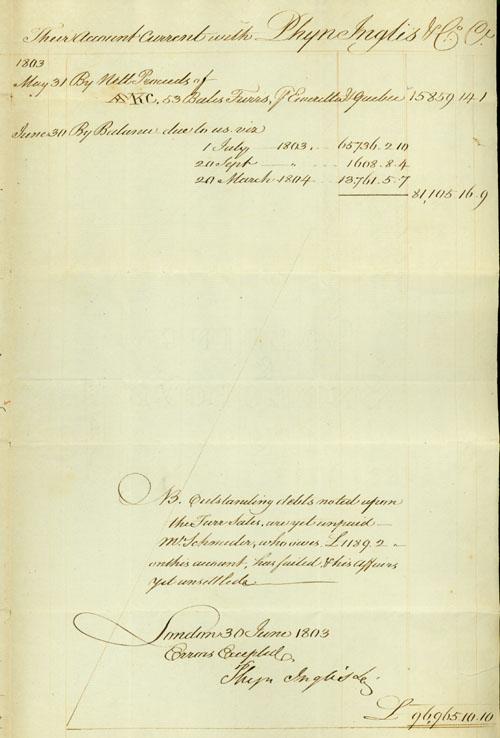 Their Account Current with Phyn Inglis & Co. Cr
1803
May 31 By Nett Proceeds of
53 Bales Furrs, pr Emerilla & Quebec 15859.14.1
June 30 By Balance due to us viz
1 July 1803. 65736.2.10
20 Sept " 1608.8.4
20 March 1804 13761.5.7
81,105.16.9
NB. Outstanding debts noted upon
the Furr Sales, are yet unpaid
Mr. Schneider, who owes £1189.2 "
on this account, has failed & his affairs
yet unsettled.
London 30 June 1803
Errors Excepted,
Phyn Inglis & Co
£ 96,965.10.10